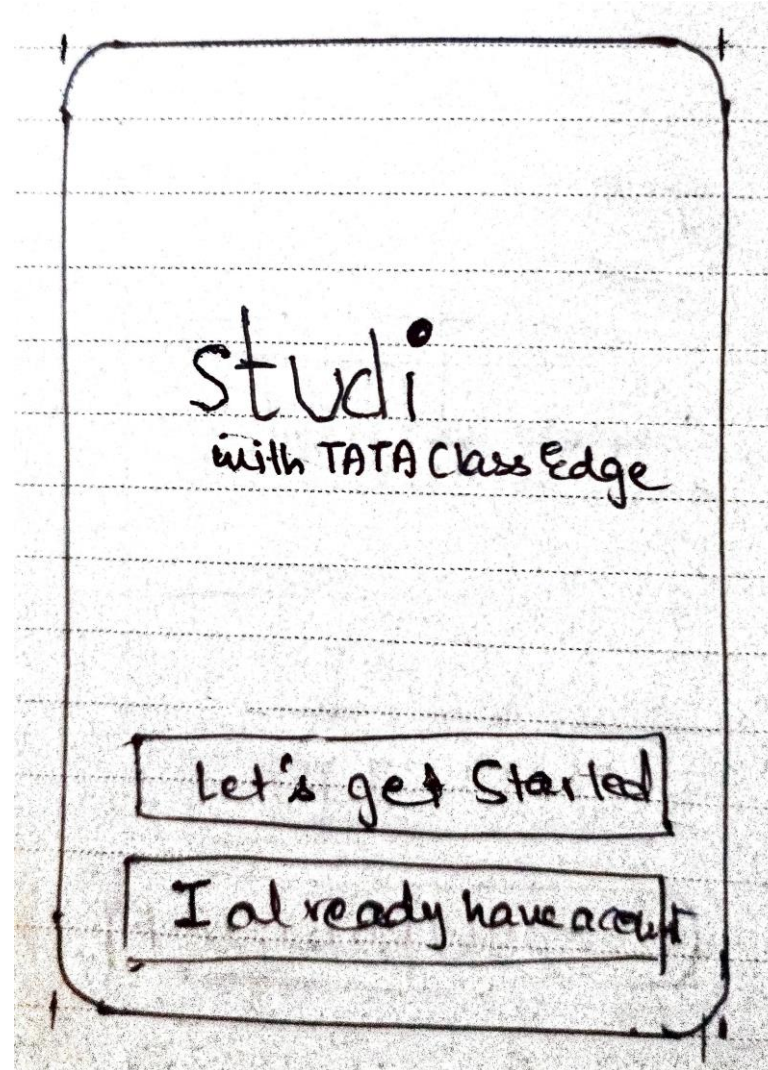 studi
with TATA Class Edge
Let's get Started
I already have acount